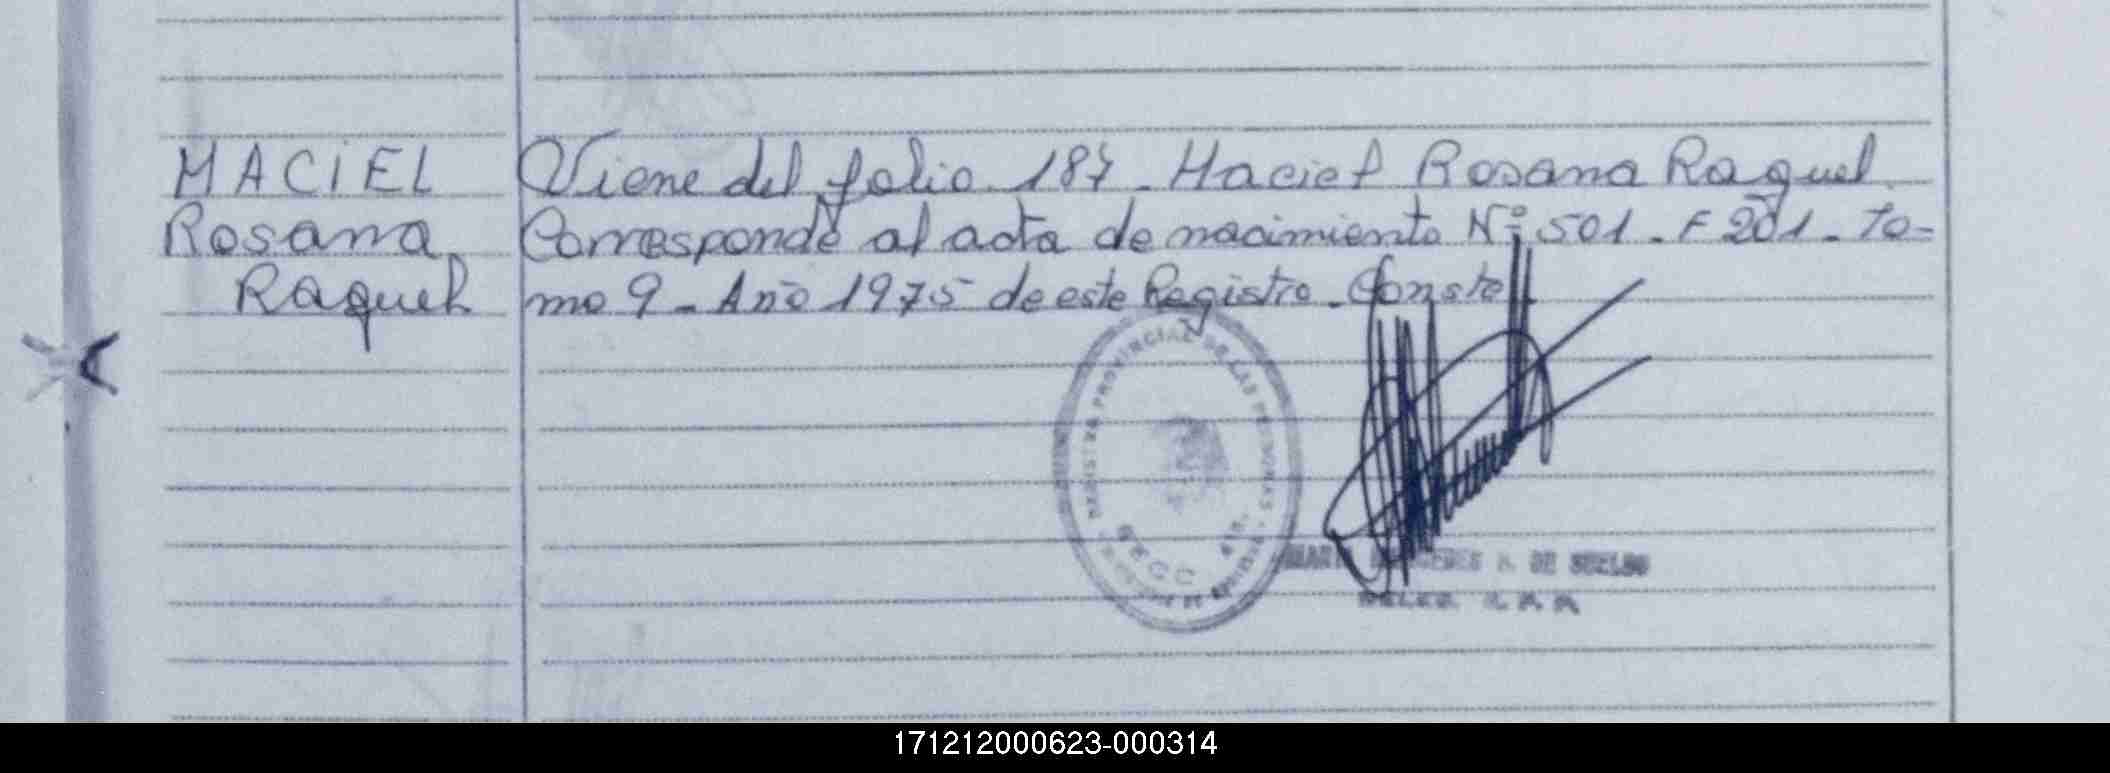 MACIEL
Rosana
Raquel
Viene del folio 187. Maciel Rosana Raquel
Corresponde al acta de nacimiento Nº 501. F 201. To-
mo 9. Año 1975 de este Registro. Conste
PROVINCIAL DE LAS PERSONAS
DE SUELDO
171212000623-000314